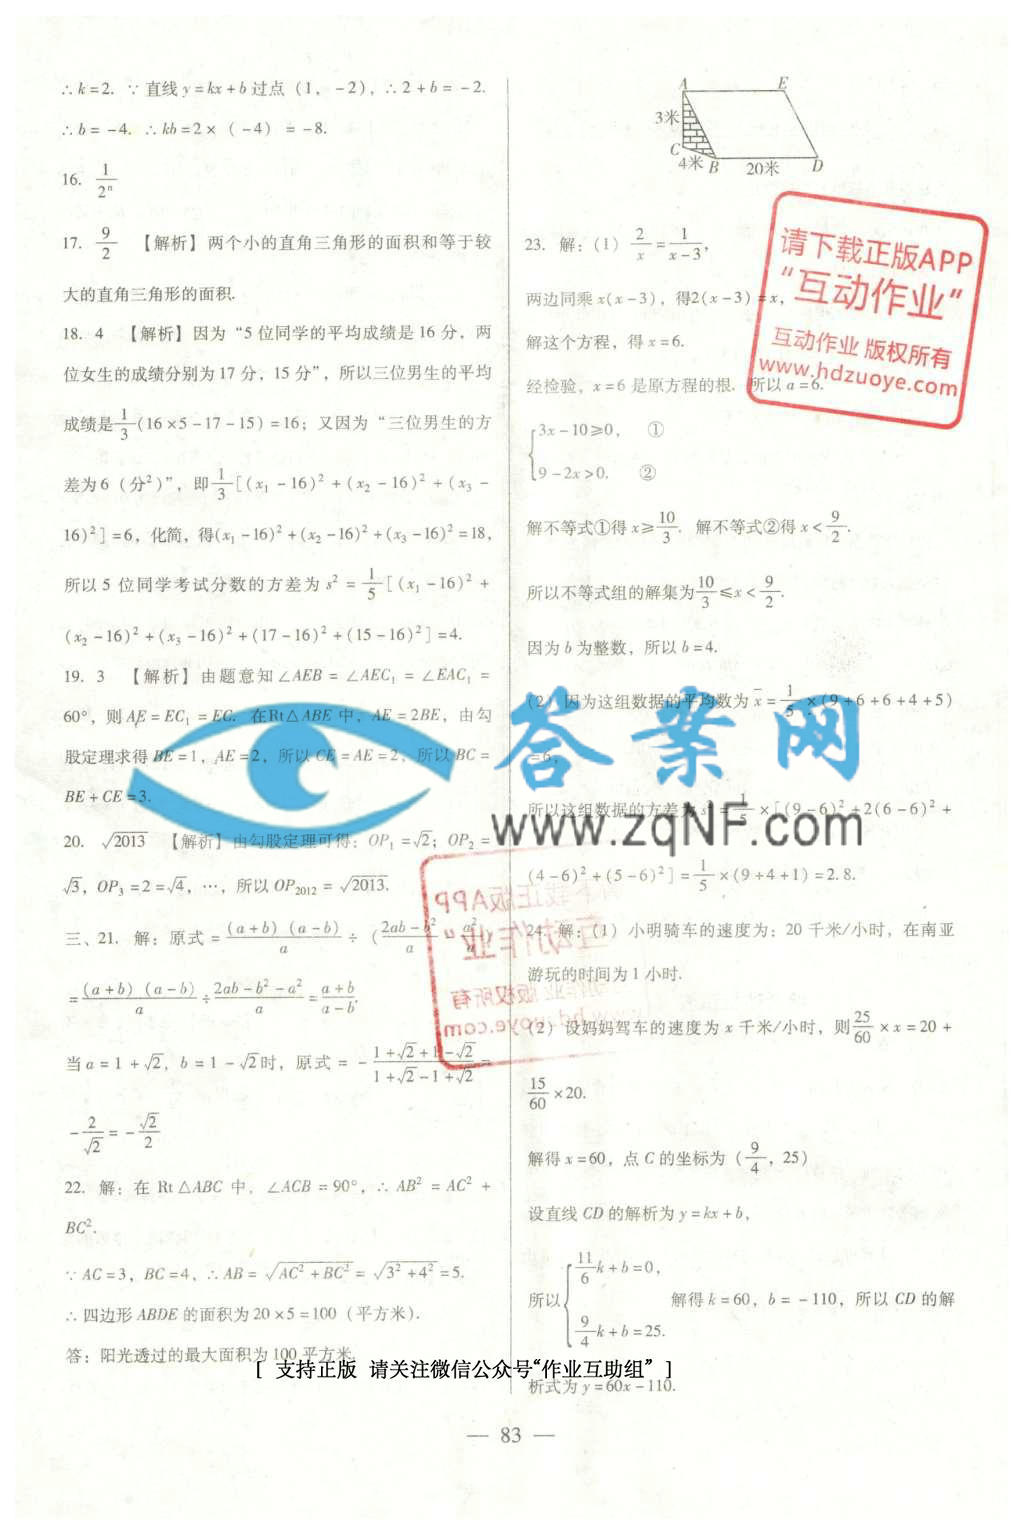 ∴k=2. ∵直线y=kx+b过点(1,-2),∴2+b=-2.
∴b=-4. ∴kb=2×(-4)=-8.
16. 1/2ⁿ
17. 9/2 【解析】两个小的直角三角形的面积和等于较
大的直角三角形的面积.
18. 4 【解析】因为“5位同学的平均成绩是16分,两
位女生的成绩分别为17分,15分”,所以三位男生的平均
成绩是1/3(16×5-17-15)=16;又因为“三位男生的方
差为6(分²)”,即1/3[(x₁-16)²+(x₂-16)²+(x₃-
16)²]=6,化简,得(x₁-16)²+(x₂-16)²+(x₃-16)²=18,
所以5位同学考试分数的方差为s²=1/5[(x₁-16)²+
(x₂-16)²+(x₃-16)²+(17-16)²+(15-16)²]=4.
19. 3 【解析】由题意知∠AEB=∠AEC₁=∠EAC₁=
60°,则AF=EC₁=EC. 在Rt△ABE中,AE=2BE,由勾
股定理求得BE=1,AE=2,所以CE=AE=2,所以BC=
BE+CE=3.
20. √2013 【解析】由勾股定理可得:OP₁=√2;OP₂=
√3,OP₃=2=√4,…,所以OP₂₀₁₂=√2013.
三、21. 解:原式=(a+b)(a-b)/a÷(2ab-b²/a-a²/a)
=(a+b)(a-b)/a÷2ab-b²-a²/a=a+b/a-b.
当a=1+√2,b=1-√2时,原式=-1+√2+1-√2/1+√2-1+√2=
-2/√2=-√2/2
22. 解:在Rt△ABC中,∠ACB=90°,∴AB²=AC²+
BC².
∵AC=3,BC=4,∴AB=√AC²+BC²=√3²+4²=5.
∴四边形ABDE的面积为20×5=100(平方米).
答:阳光透过的最大面积为100平方米.
A E
3米
C
4米 B 20米 D
23. 解:(1)2/x=1/x-3,
两边同乘x(x-3),得2(x-3)=x,
解这个方程,得x=6.
经检验,x=6是原方程的根. 所以a=6.
3x-10≥0, ①
9-2x>0. ②
解不等式①得x≥10/3. 解不等式②得x<9/2.
所以不等式组的解集为10/3≤x<9/2.
因为b为整数,所以b=4.
(2)因为这组数据的平均数为x̄=1/5×(9+6+6+4+5)
=6,
所以这组数据的方差为s²=1/5×[(9-6)²+2(6-6)²+
(4-6)²+(5-6)²]=1/5×(9+4+1)=2.8.
24. 解:(1)小明骑车的速度为:20千米/小时,在南亚
游玩的时间为1小时.
(2)设妈妈驾车的速度为x千米/小时,则25/60×x=20+
15/60×20.
解得x=60,点C的坐标为(9/4,25)
设直线CD的解析为y=kx+b,
所以 11/6k+b=0,
9/4k+b=25. 解得k=60,b=-110,所以CD的解
析式为y=60x-110.
请下载正版APP
“互动作业”
互动作业 版权所有
www.hdzuoye.com
答案网
www.zqNF.com
[ 支持正版 请关注微信公众号“作业互助组” ]
— 83 —